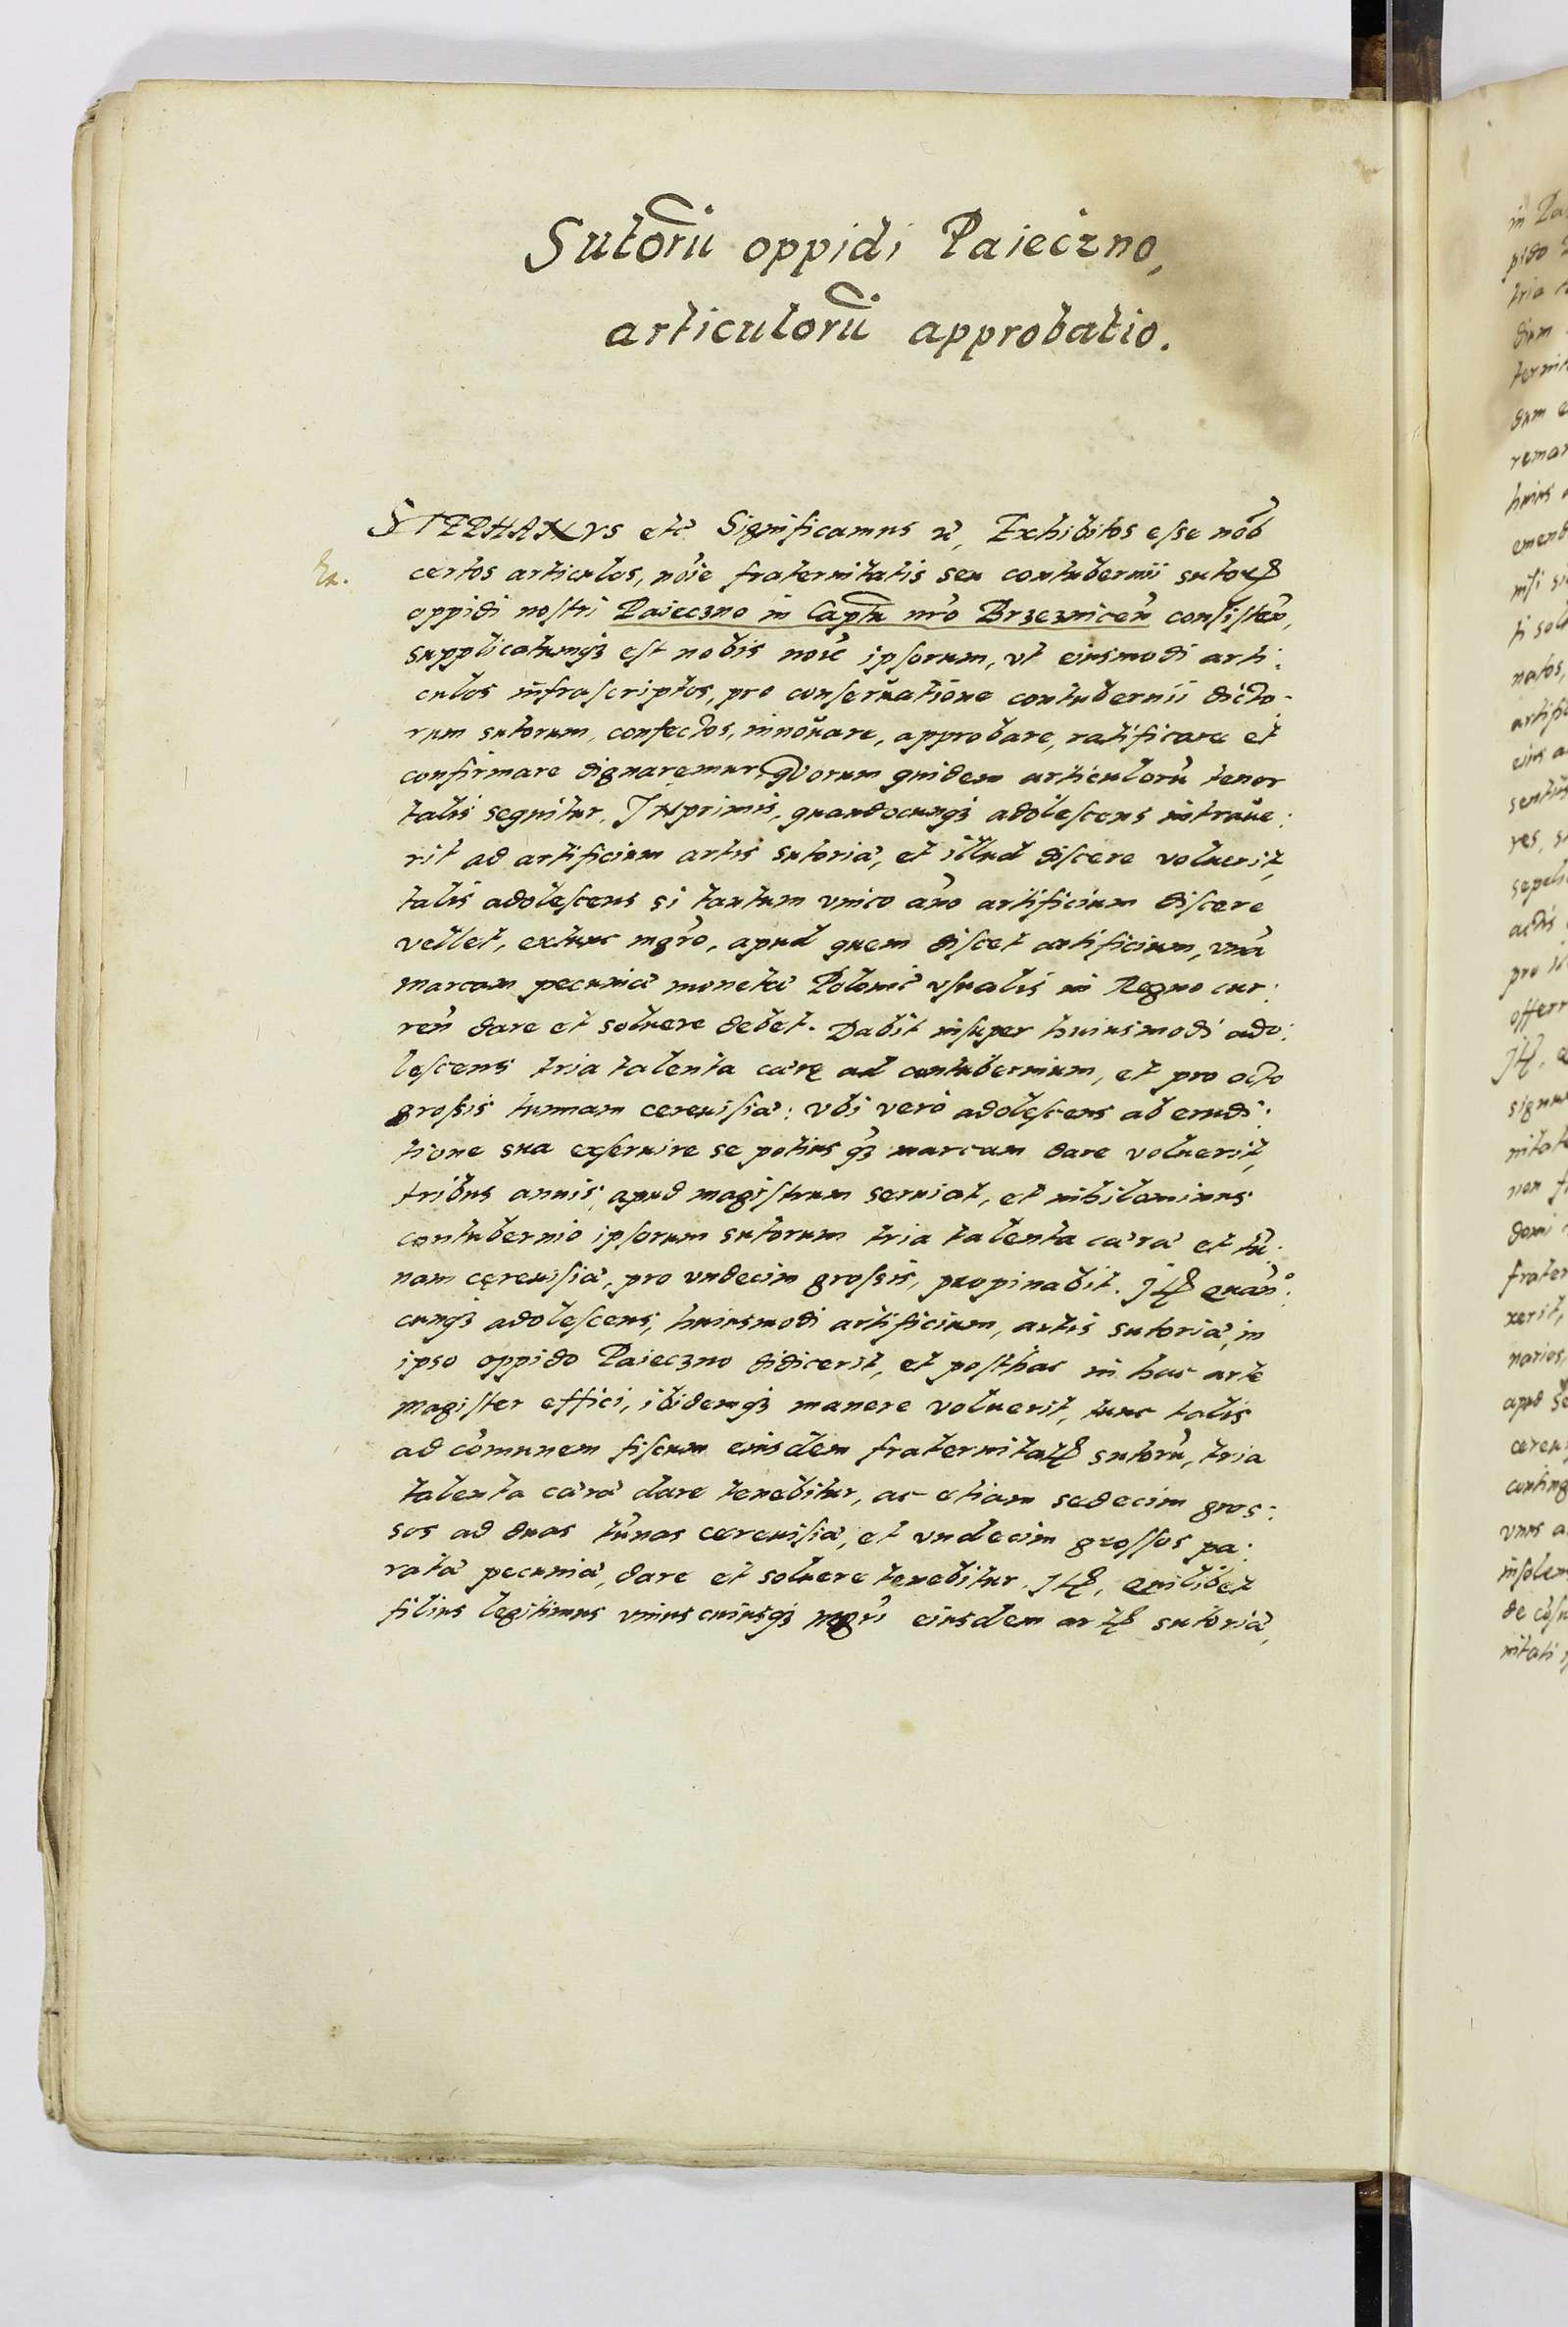 Sutorũ oppidi Paieczno,
articulorũ approbatio.
STEPHANVS etc̃ Significamus &c, Exhibitos esse nob̃
certos articulos, noĩe fraternitatis seu contubernii sutoꝝ
oppidi nostri Paieczno in Captu nr̃o Brzeznicen̄ consisten̄,
supplicatumqꝫ est nobis noĩe ipsorum, vt eiusmodi arti:
culos infrascriptos, pro conseruatione contubernii dicto-
rum sutorum, confectos, innouare, approbare, ratificare et
confirmare dignaremur, Quorum quidem articulorũ tenor
talis sequitur, INprimis, quandocunqꝫ adolescens intraue:
rit ad artificium artis sutoriæ, et illud discere voluerit,
talis adolescens si tantum vnico añno artificium discere
vellet, extunc mgr̃o, apud quem discet artificium, vnã
marcam pecuniæ monetæ Polonic̃ vsualis in Regno cur:
ren̄ dare et soluere debet. Dabit insuper huiusmodi ado:
lescens tria talenta cæræ ad contubernium, et pro octo
grossis tunnam cereuisiæ: vbi verò adolescens ab erudi:
tione sua exseruire se potius qꝫ marcam dare voluerit,
tribus annis, apud magistrum seruiat, et nihilominus
contubernio ipsorum sutorum tria talenta cæræ et tũ:
nam cęreuisiæ, pro vndecim grossis, propinabit. Itꝫ Quan̄º:
cunqꝫ adolescens, huiusmodi artificium, artis sutoriæ, in
ipso oppido Paieczno didicerit, et posthac in hac arte
magister effici, ibidemqꝫ manere voluerit, tunc talis
ad com̃unem fiscum eiusdem fraternitatꝭ sutorũ, tria
talenta cæræ dare tenebitur, ac etiam sedecim gros:
sos ad duas tũnas cereuisiæ, et vndecim grossos pa:
ratæ pecuniæ, dare et soluere tenebitur. Itꝫ, Quilibet
filius legitimus vniuscuiusqꝫ mgr̃i eiusdem artꝭ sutoriæ,